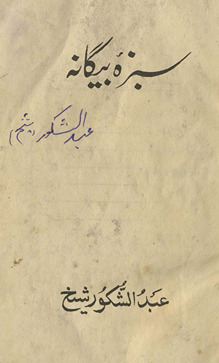 سبزۂ بیگانہ
عبدالشکور (شیخ)
عبدُ الشّکُور شیخ